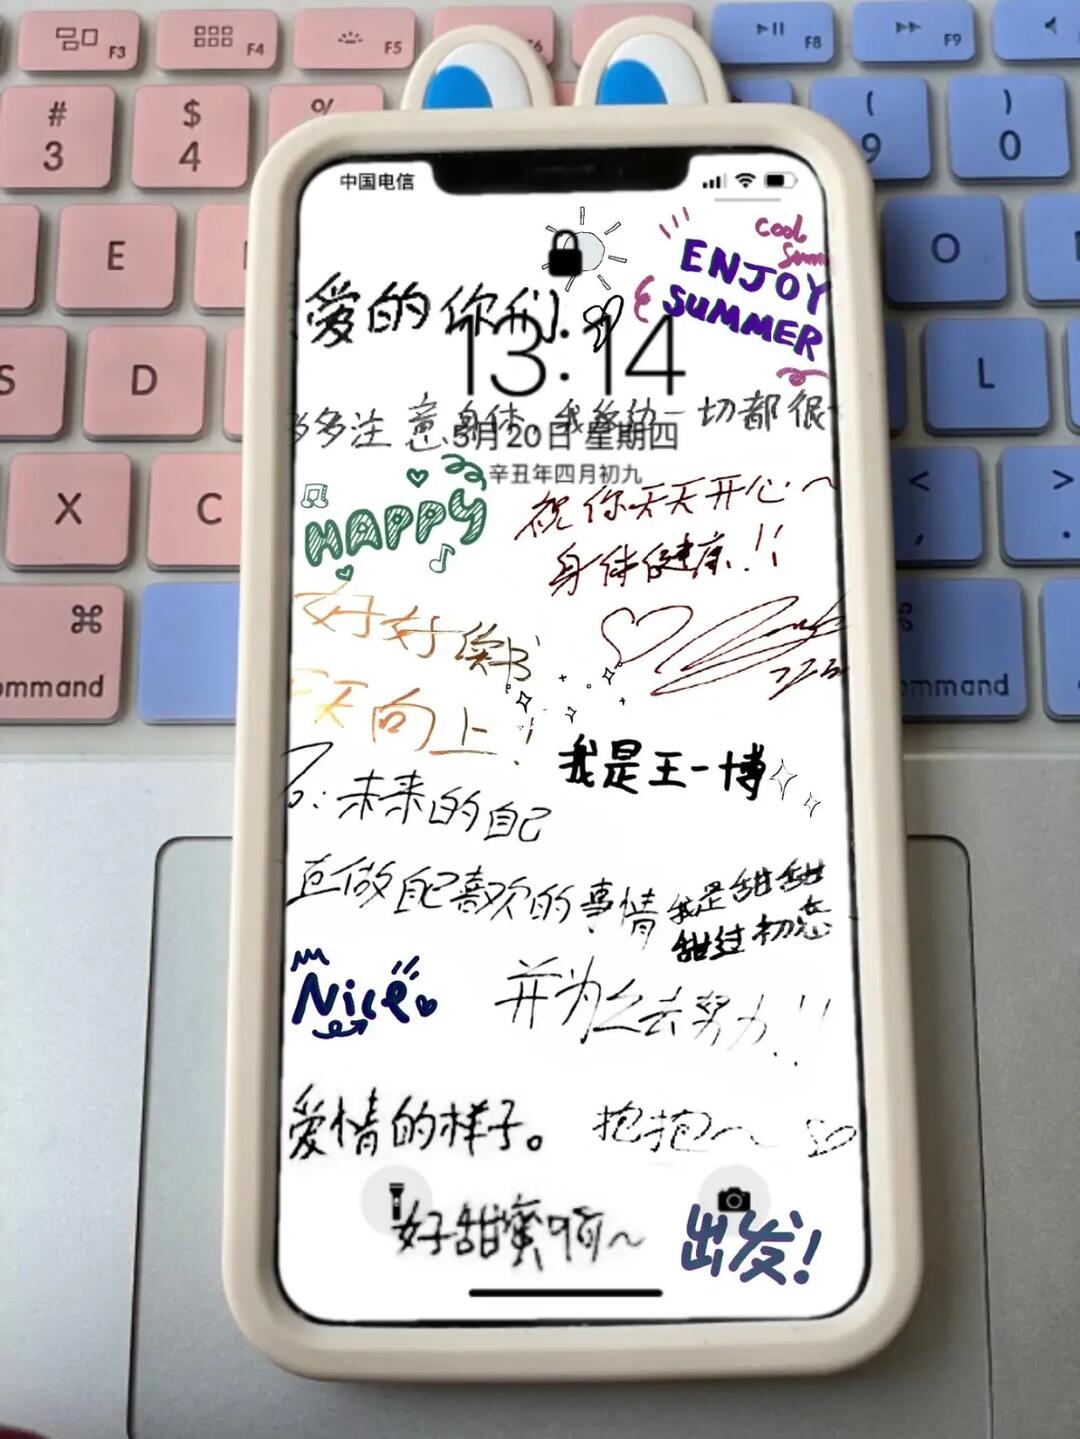 F3
F4
F5
F8
F9
#
3
$
4
%
(
9
)
0
E
O
S
D
L
X
C
<
,
>
.
⌘
ommand
⌘
ommand
中国电信
Cool
Summ
ENJOY
SUMMER
爱的你们
13:14
多多注意身体,我这边一切都很
5月20日 星期四
辛丑年四月初九
HAPPY
祝你天天开心~
身体健康!!
好好读书
天天向上!
To:未来的自己
我是王一博
直做自己喜欢的事情
我是甜甜
甜过初恋
Nice
并为之去努力!!
爱情的样子。
抱抱~
好甜蜜啊~
出发!